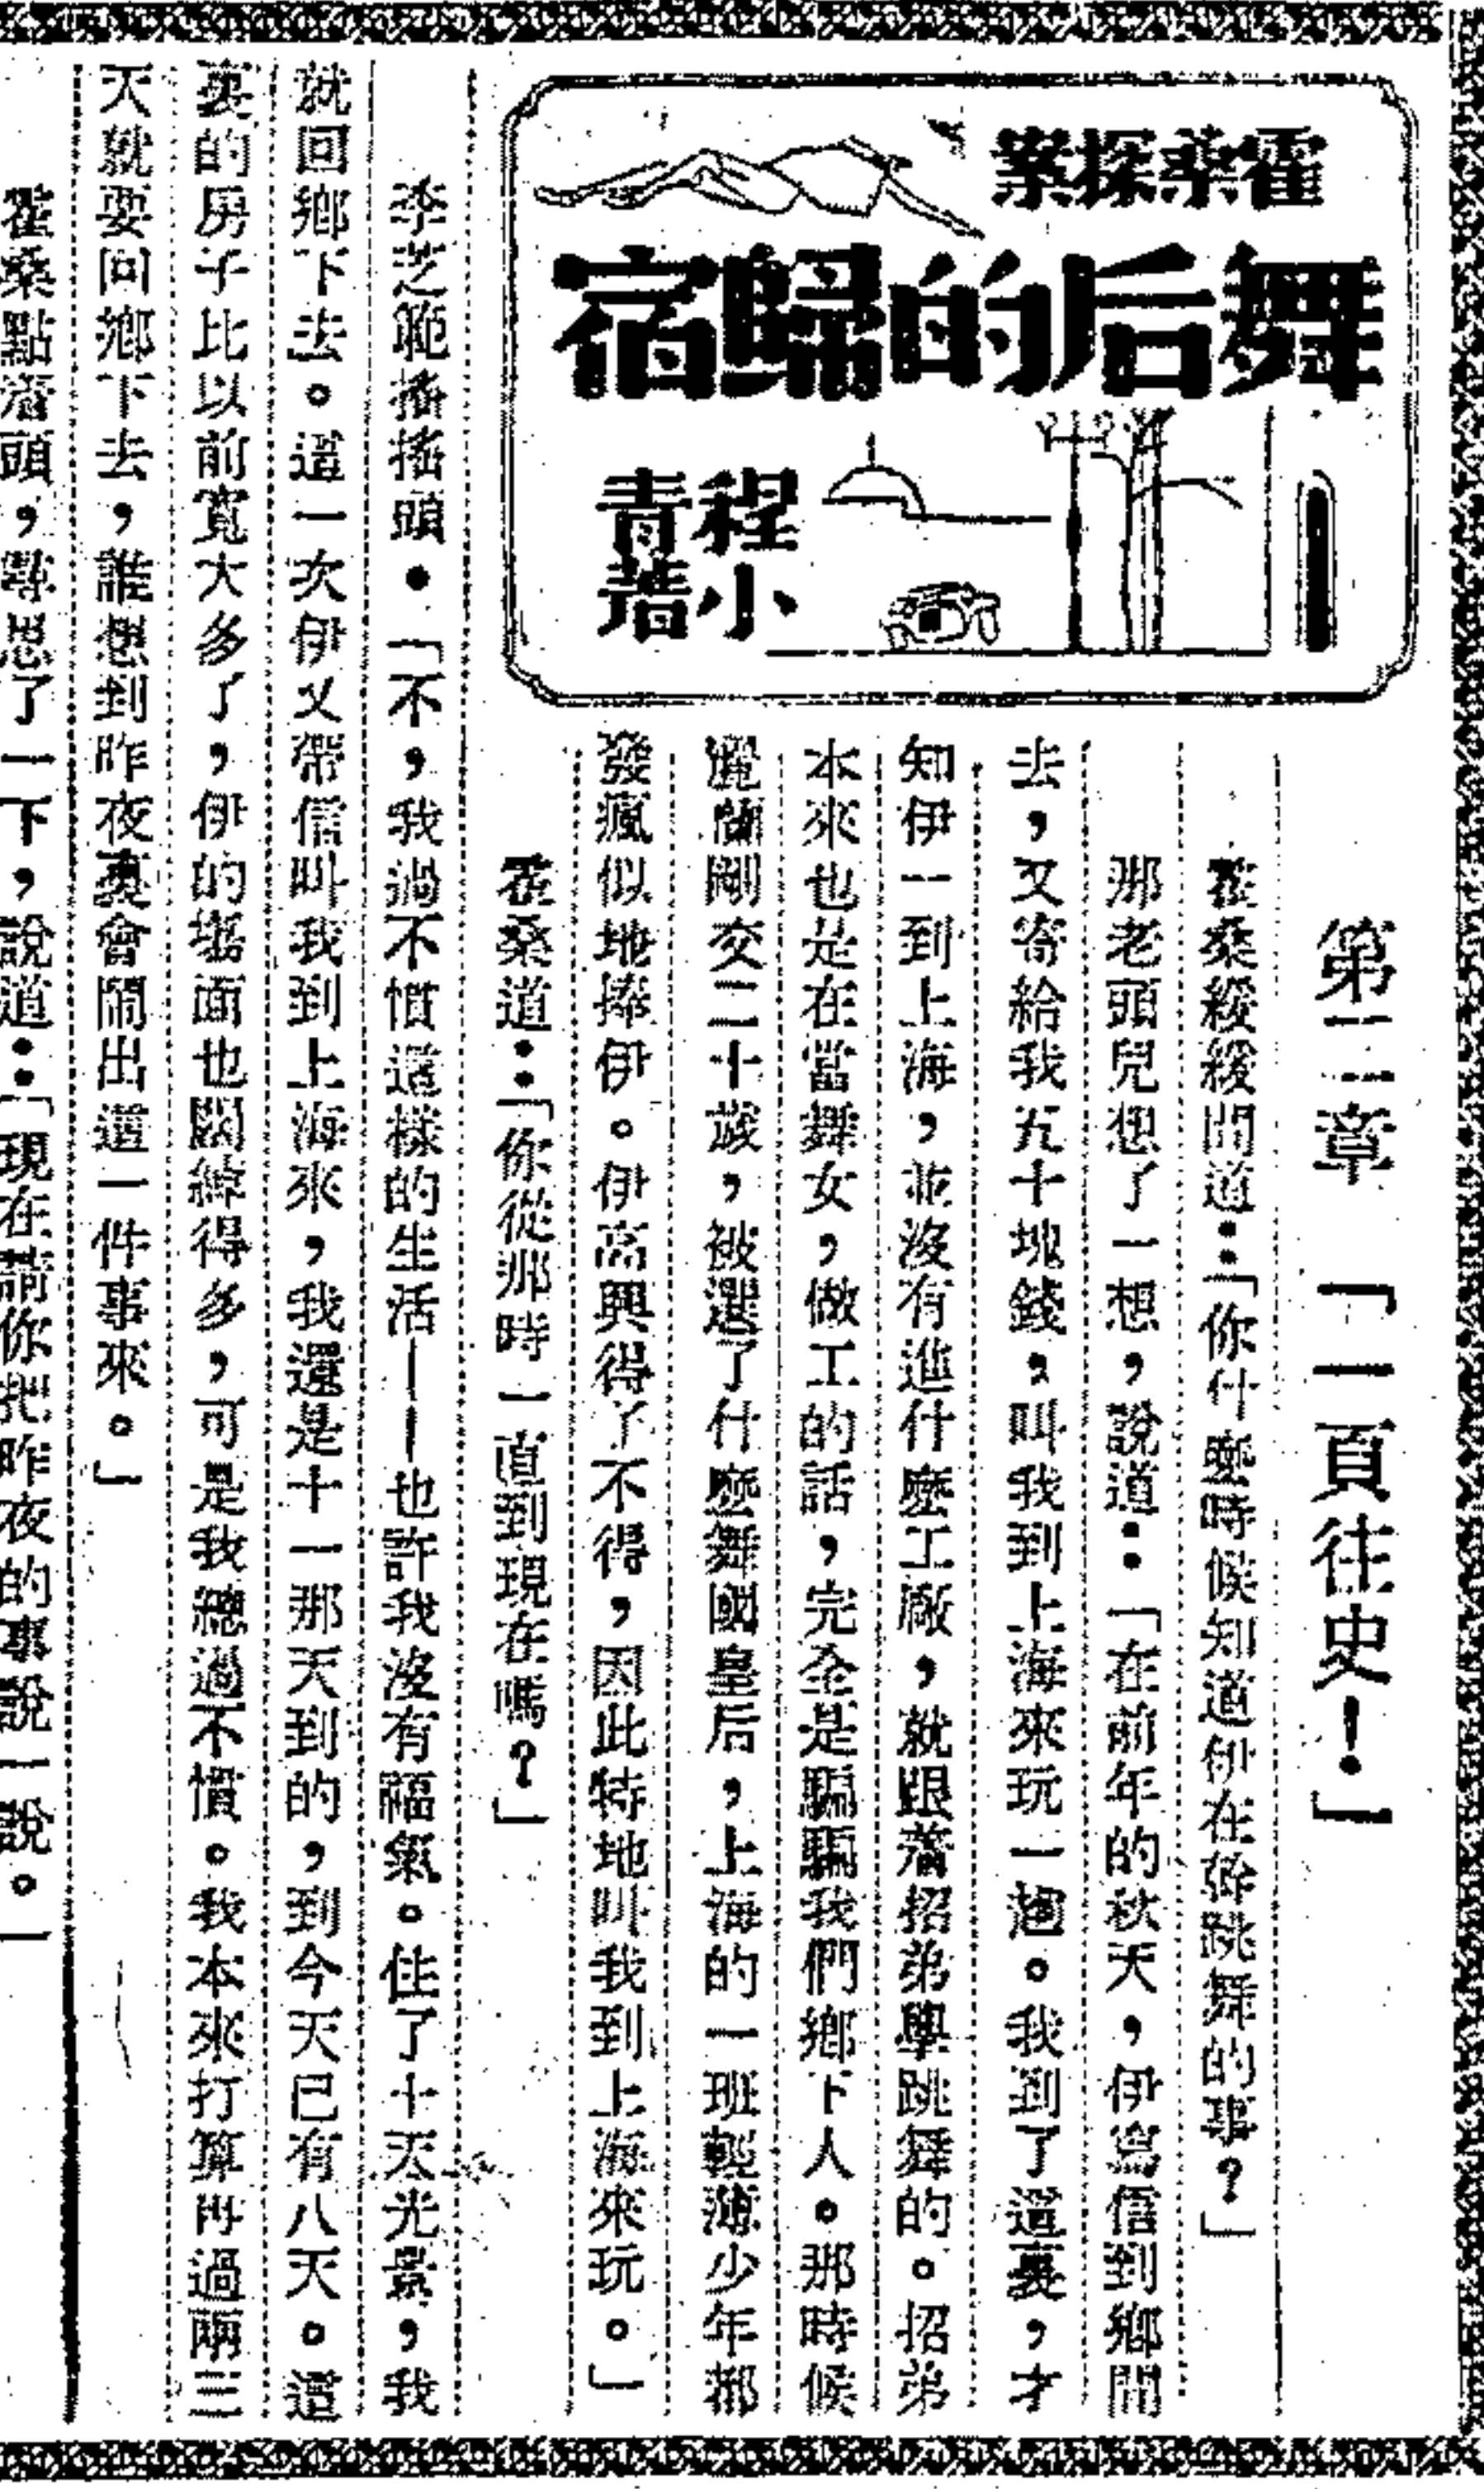 霍桑探案
舞后的歸宿
程小青著
第二章　「一頁往史！」
霍桑緩緩問道：「你什麽時候知道伊在幹跳舞的事？」
那老頭兒想了一想，說道：「在前年的秋天，伊寫信到鄉間
去，又寄給我五十塊錢，叫我到上海來玩一趟。我到了這裏，才
知伊一到上海，並沒有進什麽工廠，就跟着招弟學跳舞的。招弟
本來也是在當舞女，做工的話，完全是騙騙我們鄉下人。那時候
麗蘭剛交二十歲，被選了什麽舞國皇后，上海的一班輕薄少年都
發瘋似地捧伊。伊高興得了不得，因此特地叫我到上海來玩。」
霍桑道：「你從那時一直到現在嗎？」
李芝範搖搖頭。「不，我過不慣這樣的生活——也許我沒有福氣。住了十天光景，我
就回鄉下去。這一次伊又帶信叫我到上海來，我還是十一那天到的，到今天已有八天。這
裏的房子比以前寬大多了，伊的塲面也闊綽得多，可是我總過不慣。我本來打算再過兩三
天就要回鄉下去，誰想到昨夜裏會鬧出這一件事來。」
霍桑點着頭，尋思了一下，說道：「現在請你把昨夜的事說一說。」